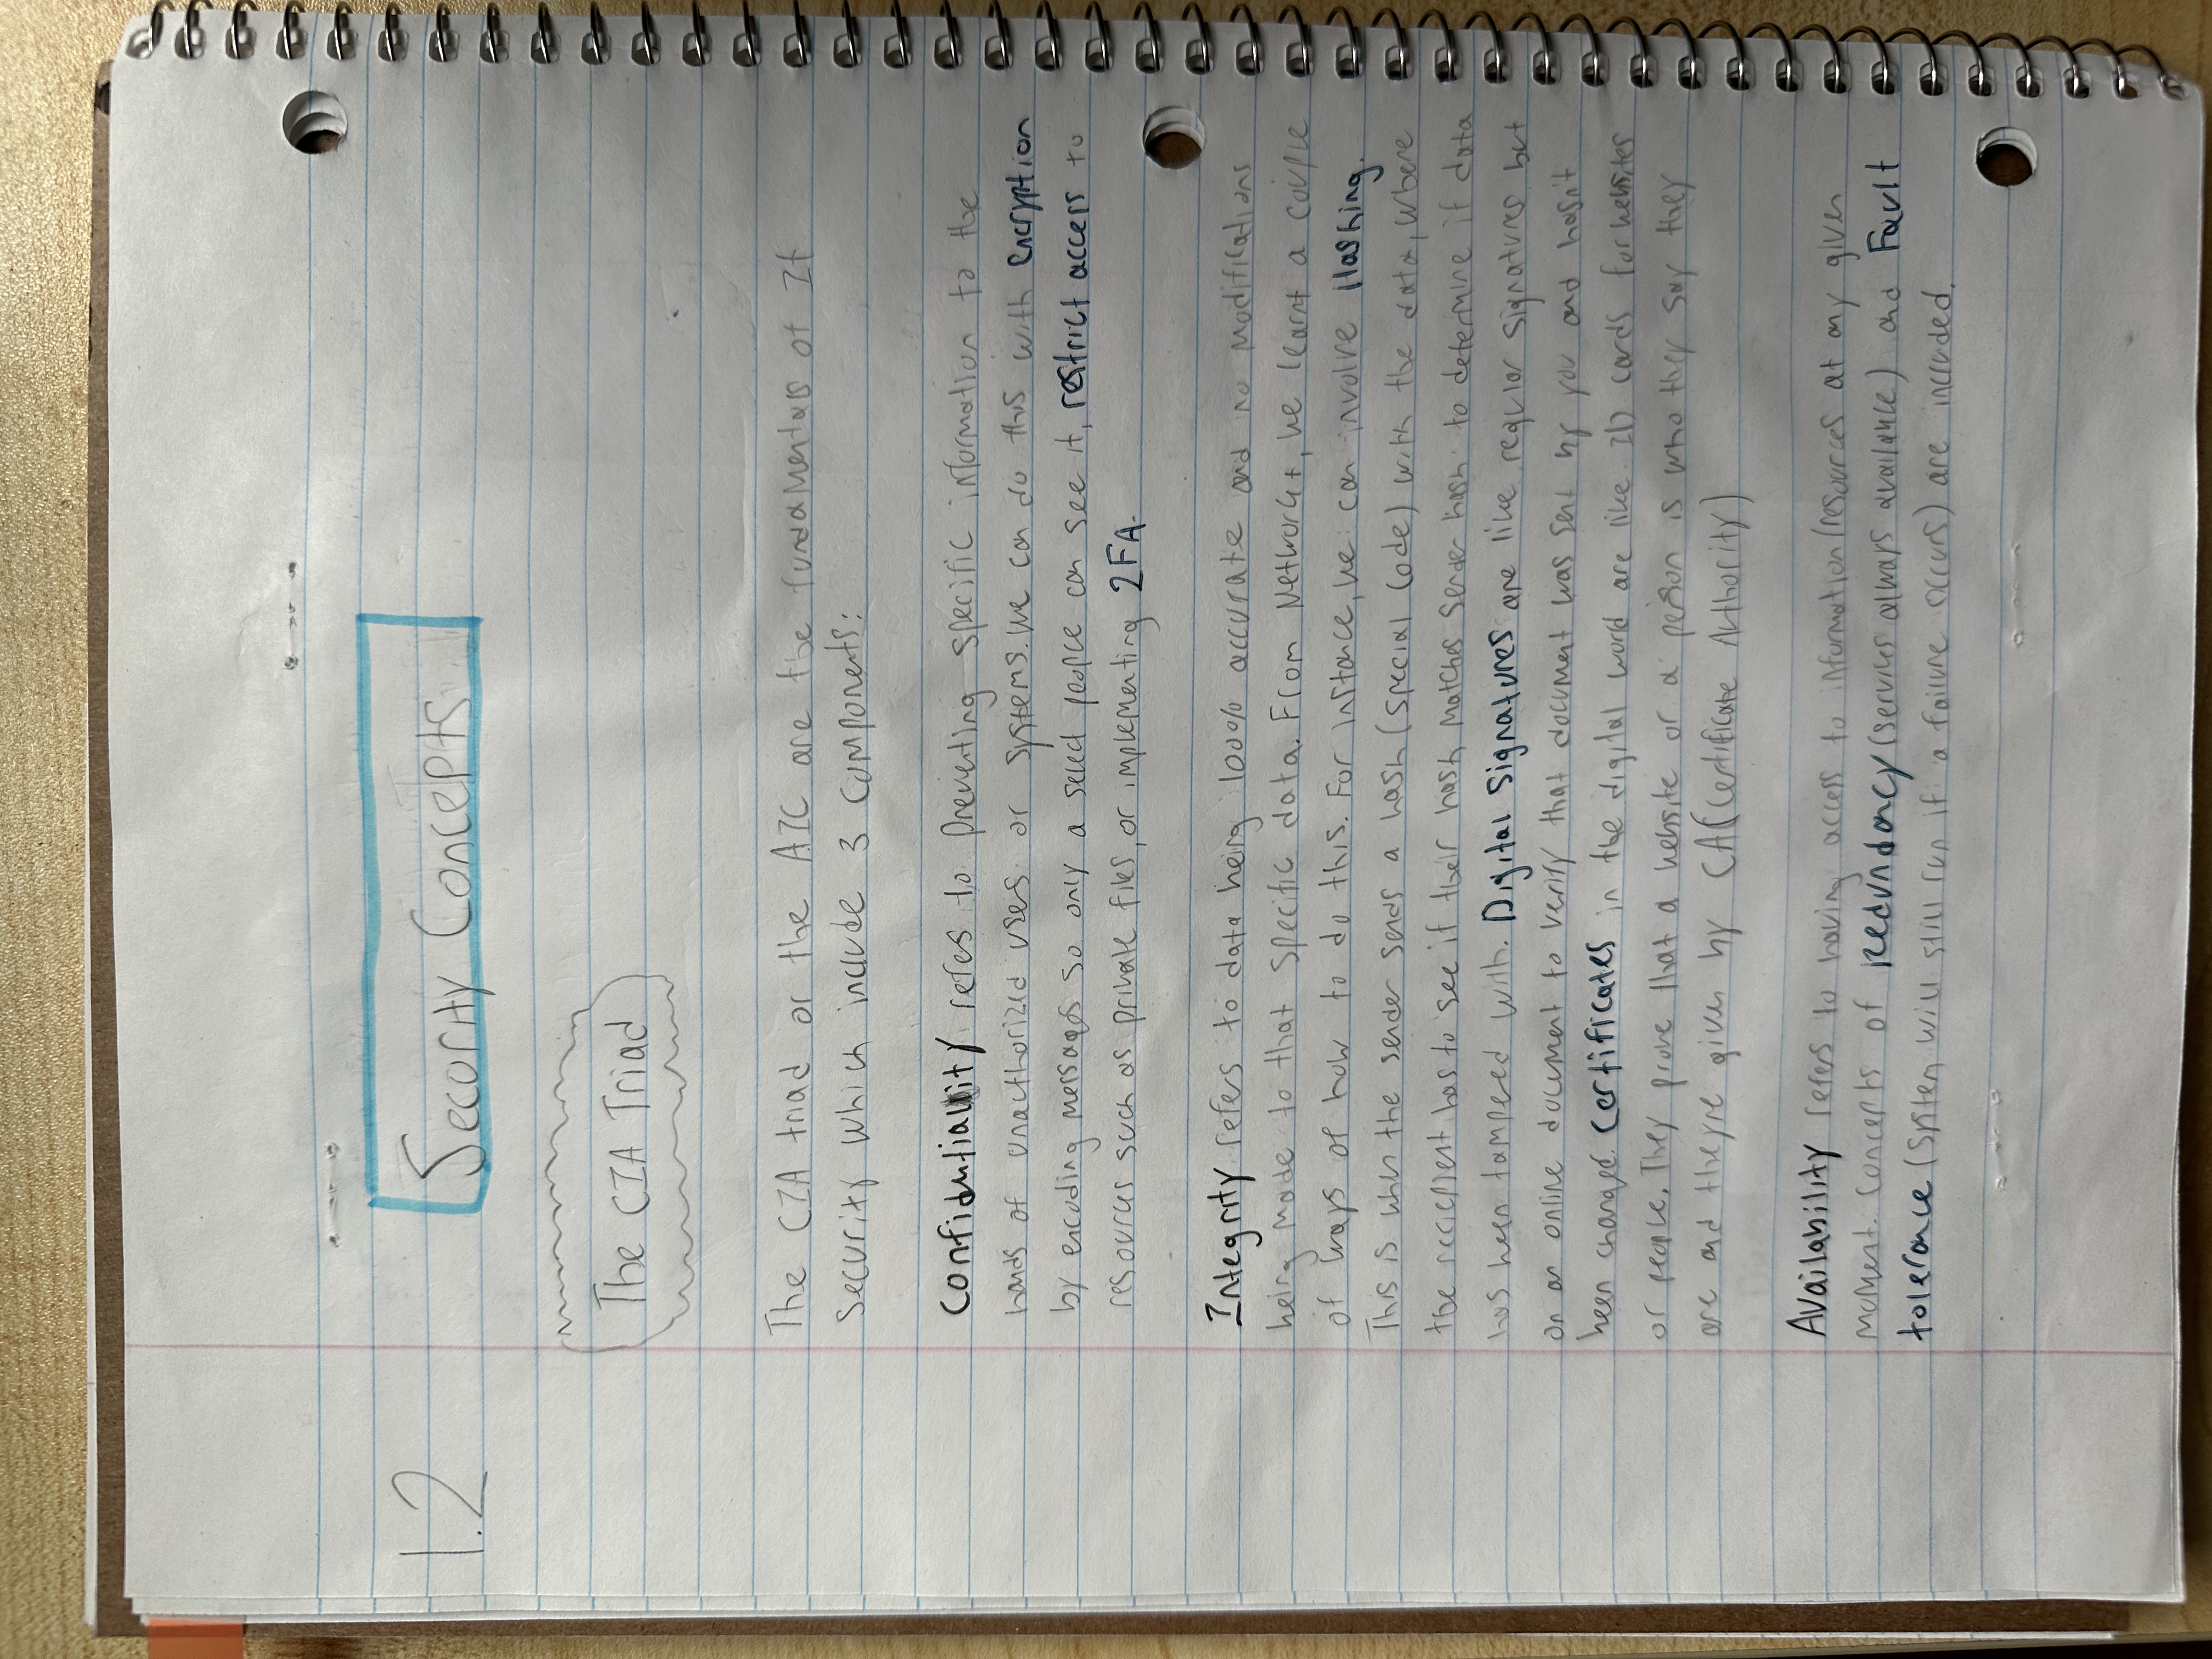 1.2 Security Concepts
The CIA Triad
The CIA triad or the AIC are the fundamentals of It
Security which include 3 components:
Confidentiality refers to preventing specific information to the
hands of unauthorized users or systems. We can do this with encryption
by encoding messages so only a select people can see it, restrict access to
resources such as private files, or implementing 2FA.
Integrity refers to data being 100% accurate and no modifications
being made to that specific data. From Network+, we learnt a couple
of ways of how to do this. For instance, we can involve Hashing.
This is when the sender sends a hash (special code) with the data, where
the reciepient has to see if their hash matches sender hash to determine if data
has been tampered with. Digital Signatures are like regular signatures but
on an online document to verify that document was sent by you and hasn't
been changed. Certificates in the digital world are like ID cards for websites
or people. They prove that a website or a person is who they say they
are and they're given by CA(Certificate Authority)
Availability refers to having access to information/resources at any given
moment. Concepts of Redundancy (services always available) and Fault
tolerance (System will still run if a failure occurs) are included.